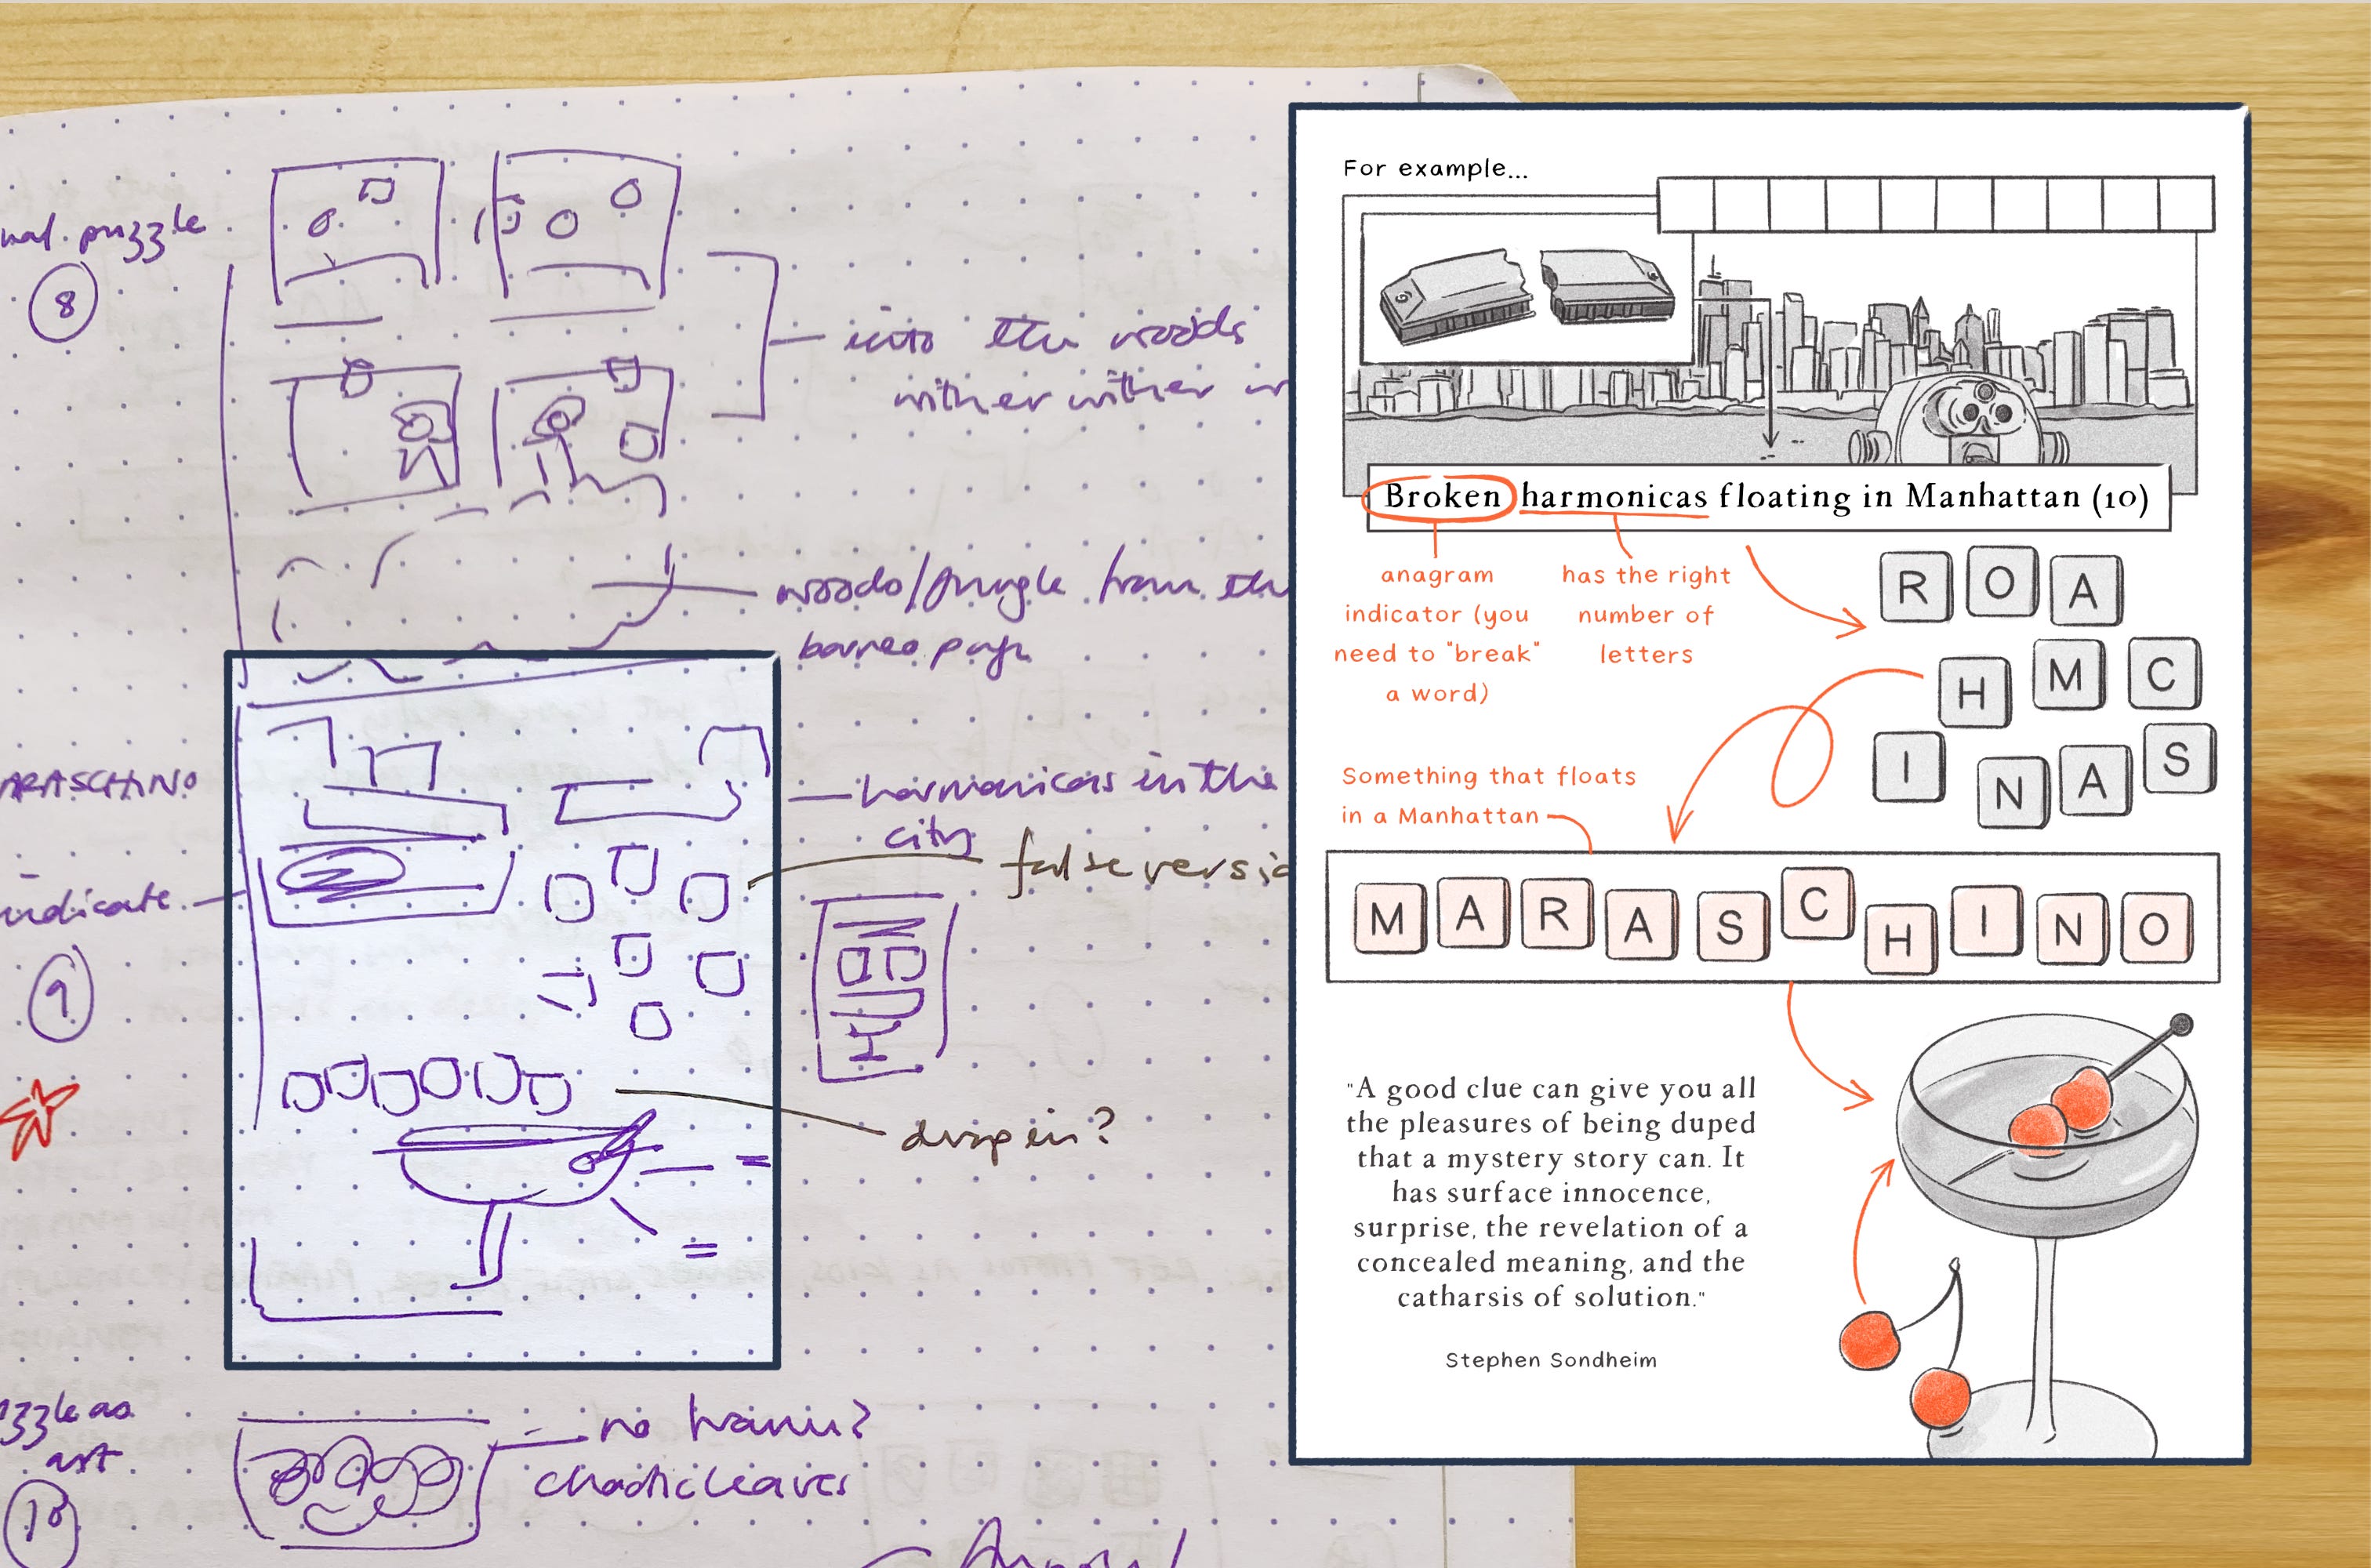 nal. puzzle
8
into the woods
wither wither
woods/jungle from the
borneo page
ARASCHINO
harmonicas in the
city
false versio
indicate
9
drop in?
zzle as
art
10
no frame?
chaotic leaves
For example...
Broken harmonicas floating in Manhattan (10)
anagram
indicator (you
need to "break"
a word)
has the right
number of
letters
R O A
H M C
I N A S
Something that floats
in a Manhattan
M A R A S C H I N O
"A good clue can give you all
the pleasures of being duped
that a mystery story can. It
has surface innocence,
surprise, the revelation of a
concealed meaning, and the
catharsis of solution."
Stephen Sondheim